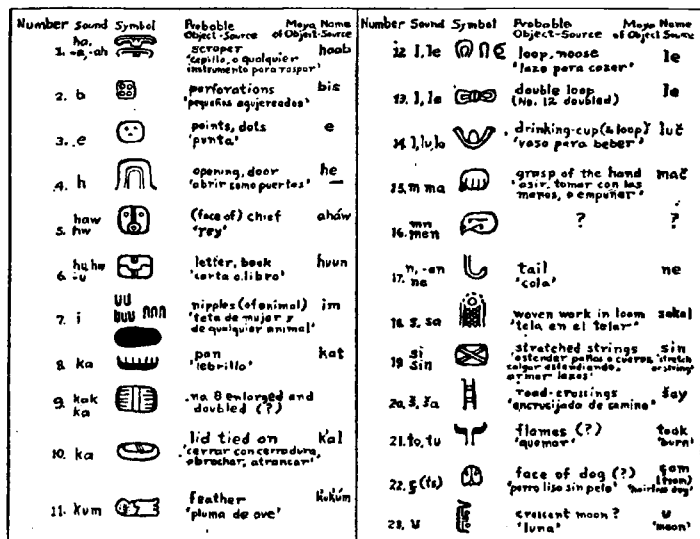 Number Sound Symbol Probable Object-Source Maya Name of Object-Source
1. ha, -a, -ah scraper haab
'cepillo, o qualquier instrumento para raspar'
2. b perforations bis
'pequeños agujereados'
3. e points, dots e
'punta'
4. h opening, door he
'abrir como puertas' —
5. haw hw (face of) chief aháw
'rey'
6. hu, hw -u letter, book huun
'carta o libro'
7. i nipples (of animal) im
'teta de mujer y de qualquier animal'
8. ka pan kat
'lebrillo'
9. kak ka no 8 enlarged and doubled (?)
10. ka lid tied on kal
'cerrar con cerradura, abrochar, atrancar'
11. kum feather kukúm
'pluma de ave'
Number Sound Symbol Probable Object-Source Maya Name of Object Source
12 l, le loop, noose le
'lazo para cazar'
13. l, le double loop le
(No. 12 doubled)
14. l, lu, lo drinking-cup (& loop) luč
'vaso para beber'
15. m ma grasp of the hand mač
'asir, tomar con las manos, o empuñar'
16. mn men ? ?
17. n, -en ne tail ne
'cola'
18. s, sa woven work in loom sakal
'tela en el telar'
19 si sin stretched strings sin
'estender paños o cueros, colgar estendiendo, armar lazos' 'stretch or string'
20. š, ša road-crossings šay
'encrucijada de camino'
21. to, tu flames (?) took
'quemar' 'burn'
22. ș (ts) face of dog (?)
'perro liso sin pelo' 'hairless dog'
23. u crescent moon? u
'luna' 'moon'